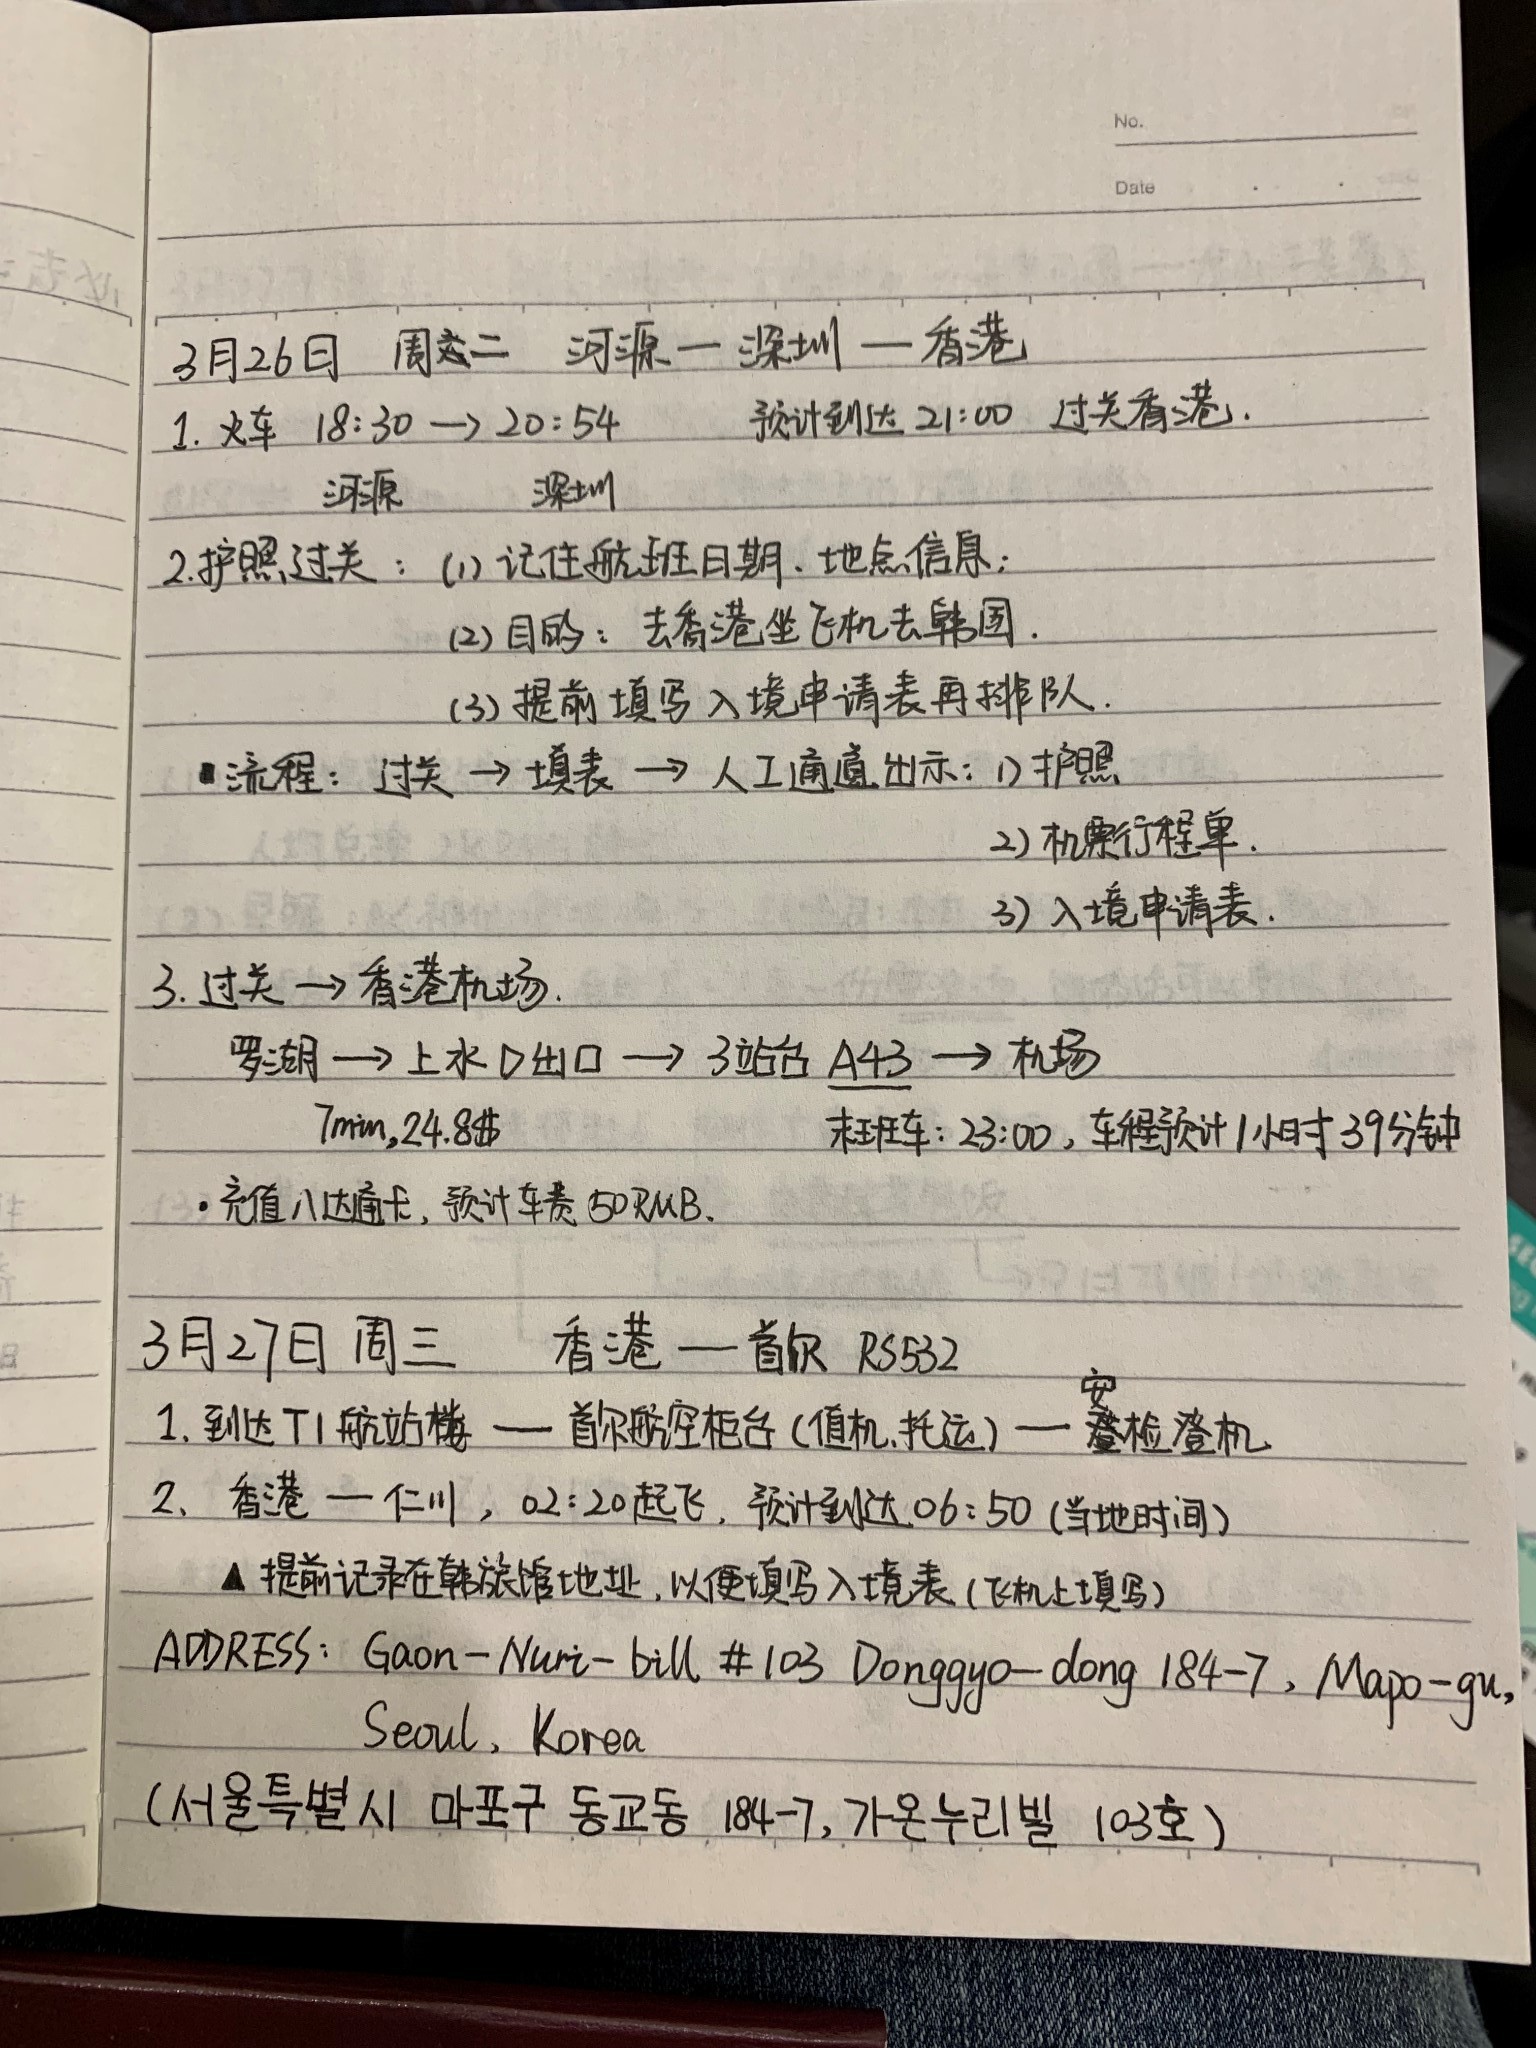 No.
Date
3月26日 周二 河源—深圳—香港
1. 火车 18:30→20:54 预计到达21:00 过关香港.
河源 深圳
2.护照过关：(1) 记住航班日期、地点信息;
(2) 目的：去香港坐飞机去韩国.
(3) 提前填写入境申请表再排队.
▪流程：过关→填表→人工通道出示：1) 护照
2) 机票行程单.
3) 入境申请表.
3. 过关→香港机场.
罗湖→上水D出口→3站台 A43→机场
7min,24.8$ 末班车：23:00，车程预计1小时39分钟
•充值八达通卡，预计车费50RMB.
3月27日 周三 香港—首尔 RS532
1. 到达T1航站楼—首尔航空柜台(值机、托运)—安检登机
2. 香港—仁川，02:20起飞，预计到达06:50 (当地时间)
▲ 提前记录在韩旅馆地址，以便填写入境表(飞机上填写)
ADDRESS: Gaon-Nuri-bill #103 Donggyo-dong 184-7, Mapo-gu,
Seoul, Korea
(서울특별시 마포구 동교동 184-7, 가온누리빌 103호)